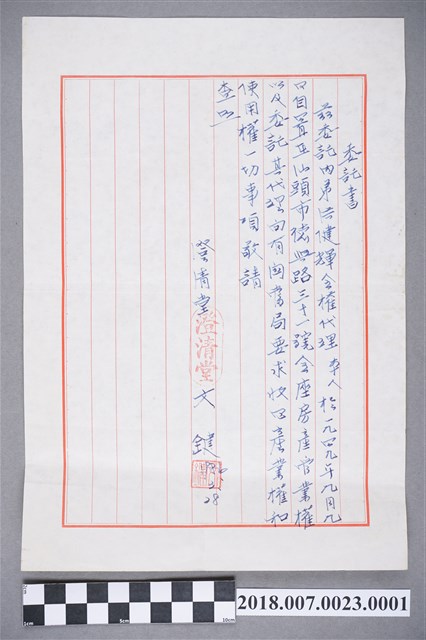 委託書
茲委託內弟洪健輝全權代理 本人於一九四九年九月九
日自置在汕頭市德興路三十一號全座房產管業權
以及委託其代理向有關當局要求收回產業權和
使用權一切事項敬請
查照
澄清堂 文鍵
澄清堂
28
1cm
5cm
10cm
2018.007.0023.0001